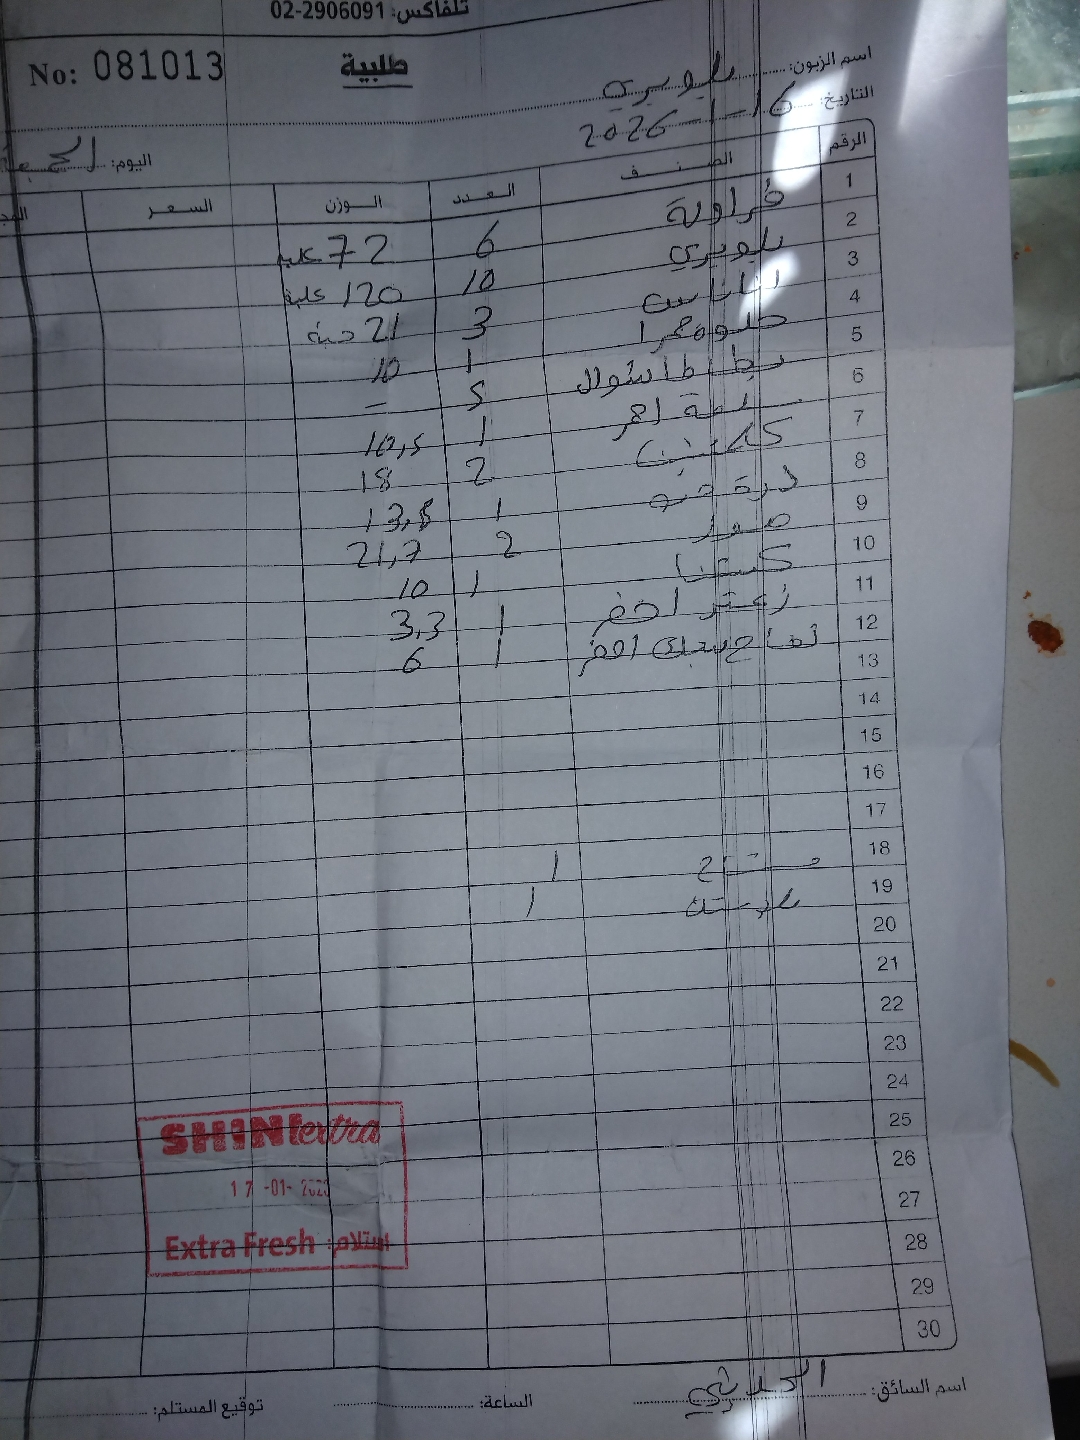 تلفاكس: 02-2906091
No: 081013
طلبية
اسم الزبون: بلوبيري
التاريخ: 16-1-2026
اليوم: الجمعة
الرقم الصنف العدد الوزن السعر
1 فراولة 6 72 علبة
2 بلوبيري 10 120 علبة
3 اناناس 3 21 حبة
4 حلوة حمرا 1 10
5 بطاطا شوال 5 –
6 احمر 1 10,5
7 كلمنتينا 2 18
8 ذرة 1 13,8
9 2 21,7
10 كستنا 1 10
11 زعتر اخضر 1 3,3
12 تفاح سكري اخضر 1 6
13
14
15
16
17
18 1
19 1
20
21
22
23
24
25
26
27
28
29
30
SHINI extra
17-01-
Extra Fresh استلام:
اسم السائق:
الساعة:
توقيع المستلم: